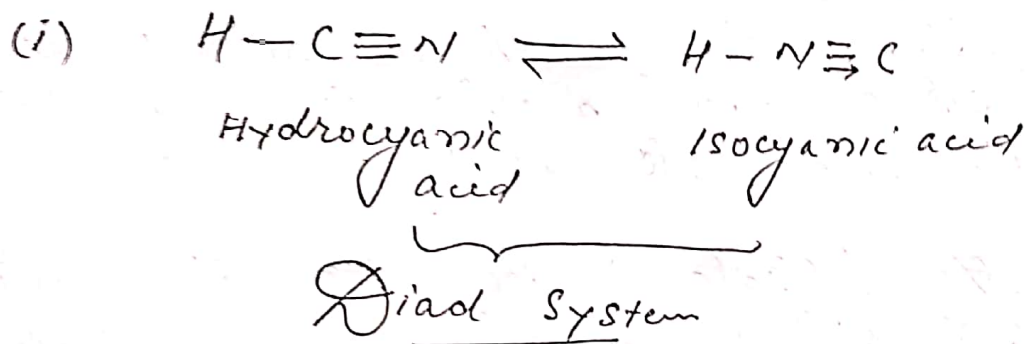 (i) H-C≡N ⇌ H-N⩱C
Hydrocyanic acid Isocyanic acid
Diad System